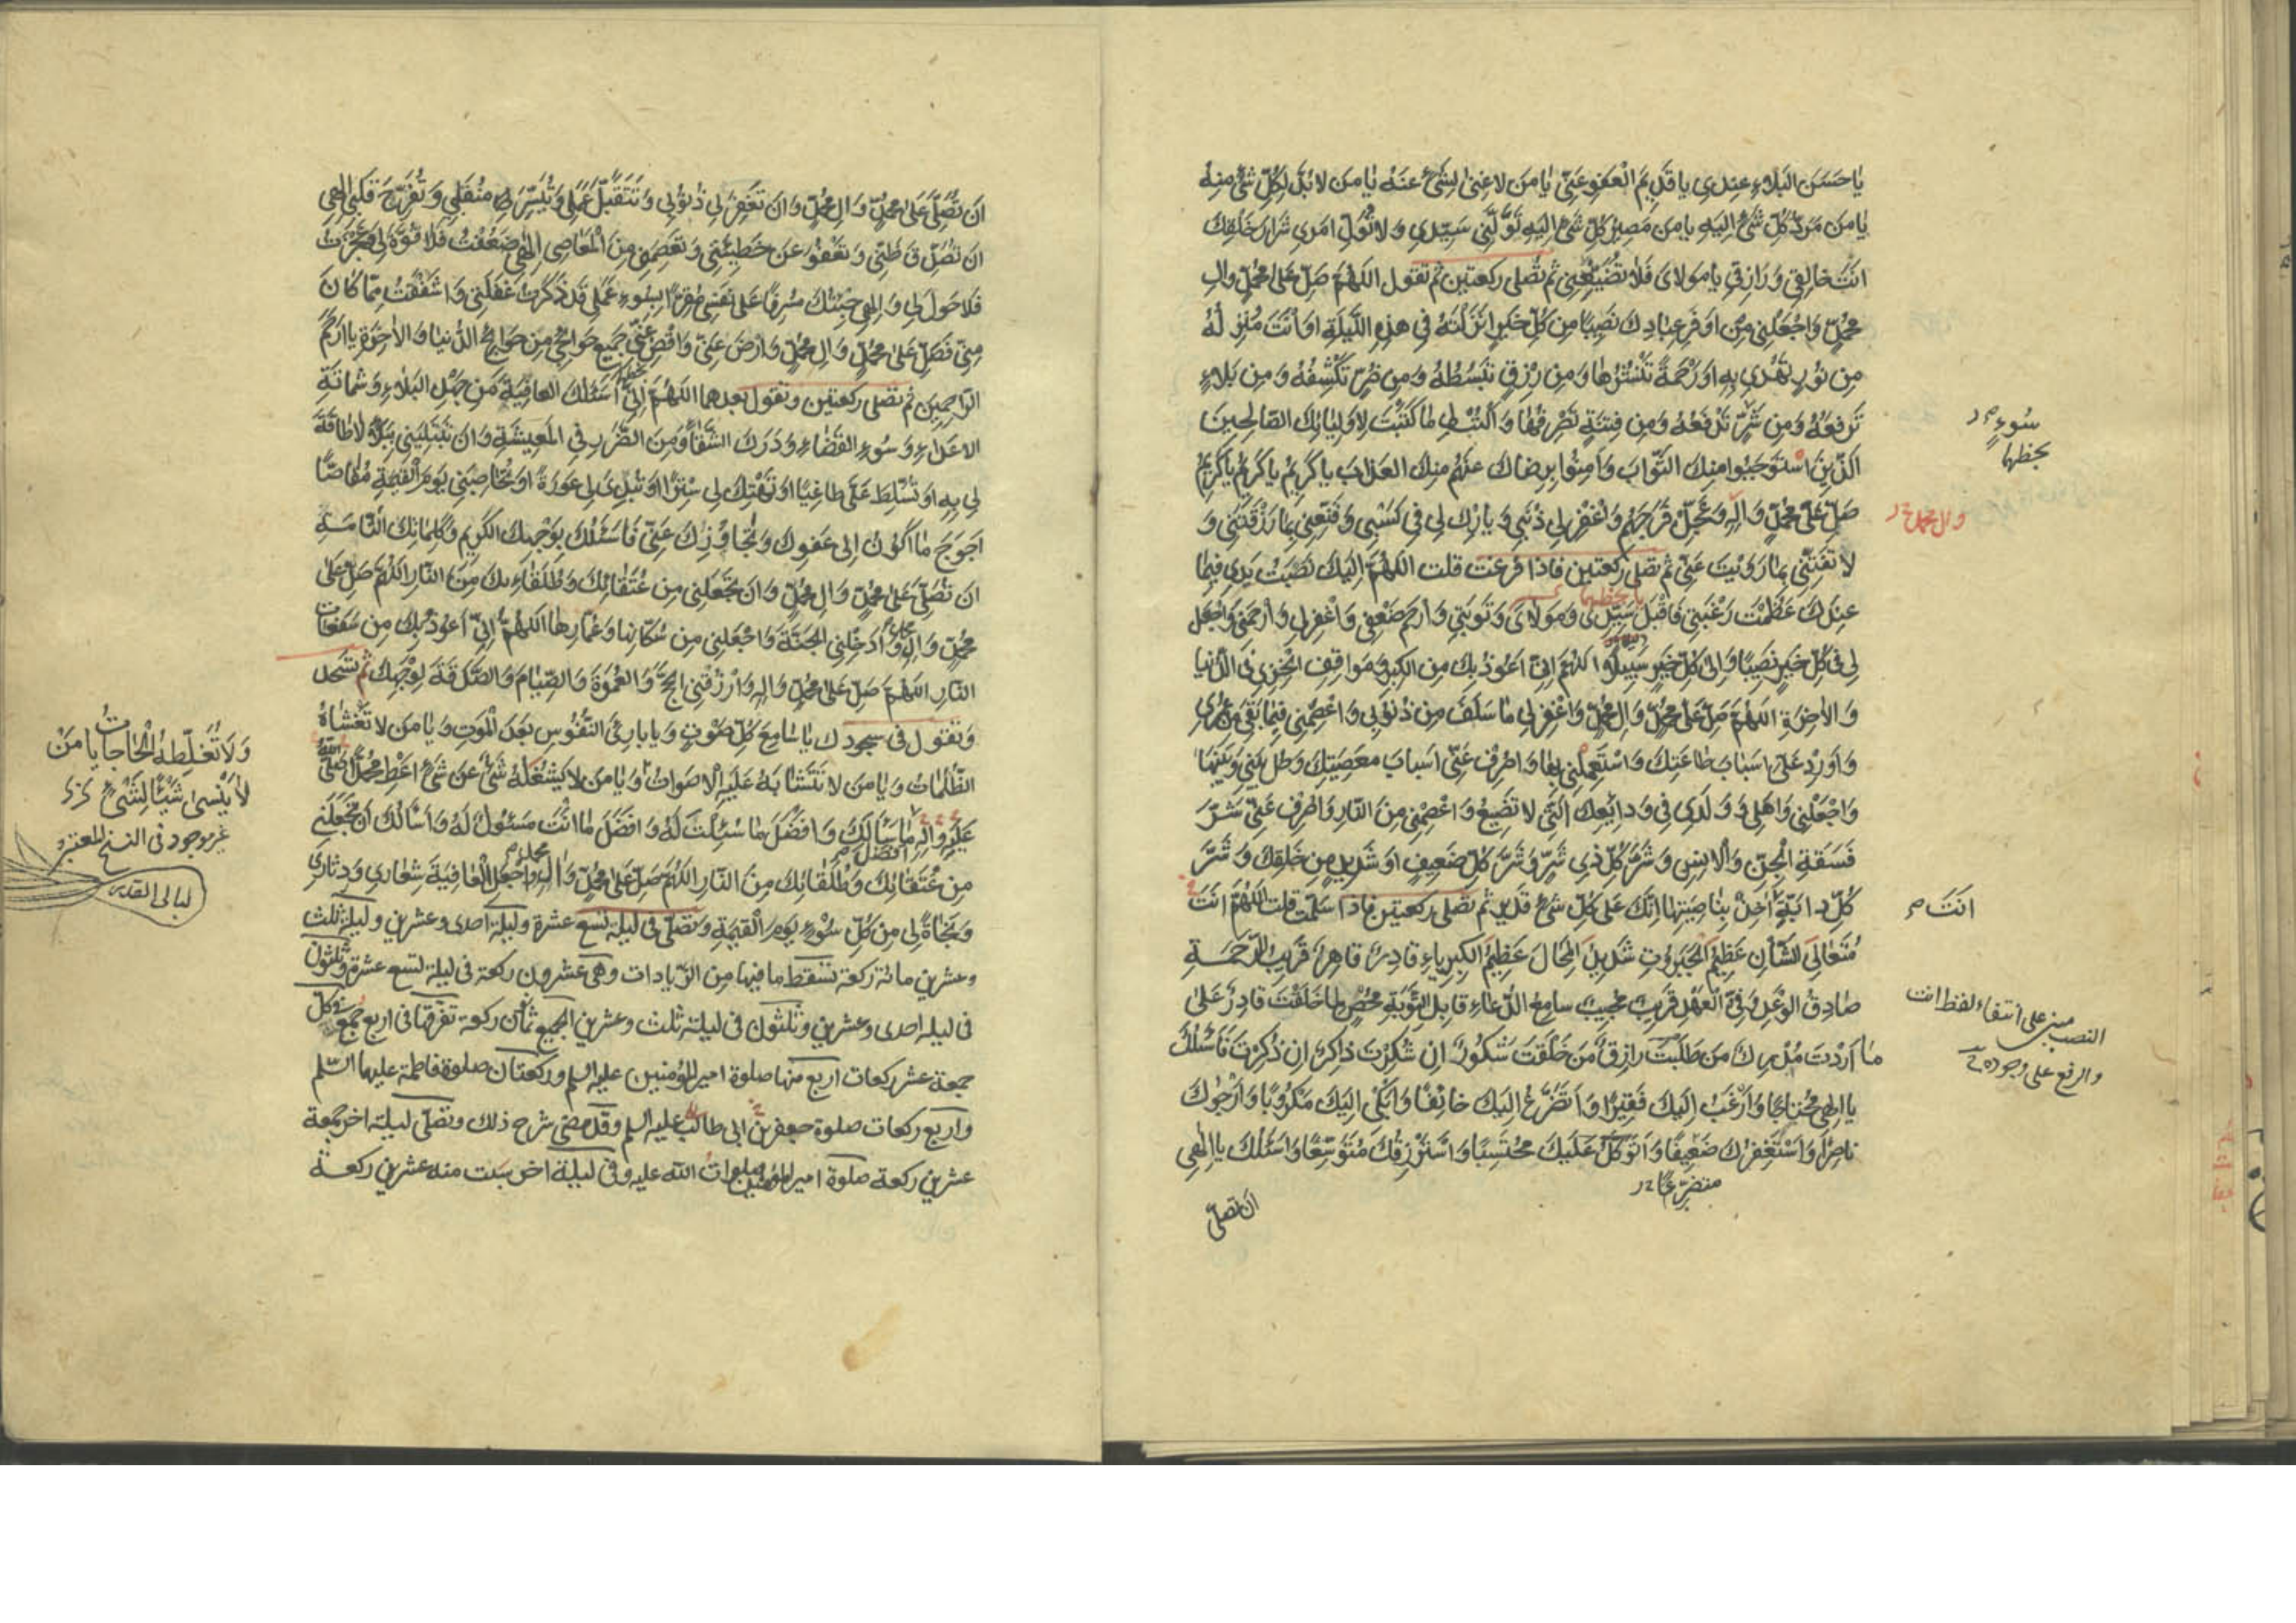 يا حَسَنَ البَلاءِ عِندي يا قَديمَ العَفوِ عَنّي يا مَن لا غِنىٰ لِشَيءٍ عَنهُ يا مَن لا بُدَّ لِكُلِّ شَيءٍ مِنهُ
يا مَن مَرَدُّ كُلِّ شَيءٍ اِلَيهِ يا مَن مَصيرُ كُلِّ شَيءٍ اِلَيهِ تَوَلَّني سَيِّدي وَلا تُوَلِّ اَمري شِرارَ خَلقِكَ
اَنتَ خالِقي وَرازِقي يا مَولايَ فَلا تُضَيِّعني ثم تصلى ركعتين ثم تقول اللهُمَّ صَلِّ عَلىٰ مُحَمَّدٍ وَالِ
مُحَمَّدٍ وَاجعَلني مِن اَوفَرِ عِبادِكَ نَصيبًا مِن كُلِّ خَيرٍ اَنزَلتَهُ في هٰذِهِ اللَّيلَةِ اَو اَنتَ مُنزِلُهُ
مِن نُورٍ تَهدي بِهِ اَو رَحمَةٍ تَنشُرُها وَمِن رِزقٍ تَبسُطُهُ وَمِن ضُرٍّ تَكشِفُهُ وَمِن بَلاءٍ
تَرفَعُهُ وَمِن شَرٍّ تَدفَعُهُ وَمِن فِتنَةٍ تَصرِفُها وَاكتُب لي ما كَتَبتَ لِاَولِيائِكَ الصّالِحينَ
الَّذينَ استَوجَبُوا مِنكَ الثَّوابَ وَاَمِنُوا بِرِضاكَ عَنهُم مِنكَ العَذابَ يا كَريمُ يا كَريمُ يا كَريمُ
صَلِّ عَلىٰ مُحَمَّدٍ وَالِهِ وَعَجِّل فَرَجَهُم وَاغفِر لي ذَنبي وَبارِك لي في كَسبي وَقَنِّعني بِما رَزَقتَني وَ
لا تَفتِنّي بِما زَوَيتَ عَنّي ثم تصلى ركعتين فاذا فرغت قلت اللهُمَّ اِلَيكَ نَصَبتُ يَدي فيما
عِندَكَ عَظُمَت رَغبَتي فَاقبَل سَيِّدي وَمَولايَ وَتَوبَتي وَارحَم ضَعفي وَاغفِر لي وَارحَمني وَاجعَل
لي في كُلِّ خَيرٍ نَصيبًا وَاِلىٰ كُلِّ خَيرٍ سَبيلًا اللهُمَّ اِنّي اَعُوذُ بِكَ مِنَ الكِبرِ وَمَواقِفِ الخِزيِ فِي الدُّنيا
وَالاٰخِرَةِ اللهُمَّ صَلِّ عَلىٰ مُحَمَّدٍ وَالِ مُحَمَّدٍ وَاغفِر لي ما سَلَفَ مِن ذُنُوبي وَاعصِمني فيما بَقِيَ مِن عُمري
وَاَورِد عَلَيَّ اَسبابَ طاعَتِكَ وَاستَعمِلني بِها وَاصرِف عَنّي اَسبابَ مَعصِيَتِكَ وَحُل بَيني وَبَينَها
وَاجعَلني وَاَهلي وَوَلَدي في وَدائِعِكَ الَّتي لا تَضيعُ وَاعصِمني مِنَ النّارِ وَاصرِف عَنّي شَرَّ
فَسَقَةِ الجِنِّ وَالاِنسِ وَشَرَّ كُلِّ ذي شَرٍّ وَشَرَّ كُلِّ ضَعيفٍ اَو شَديدٍ مِن خَلقِكَ وَشَرَّ
كُلِّ دابَّةٍ اٰخِذٌ بِناصِيَتِها اِنَّكَ عَلىٰ كُلِّ شَيءٍ قَديرٌ ثم تصلى ركعتين فاذا سلمت قلت اللهُمَّ اَنتَ
مُتَعالِيَ الشَّأنِ عَظيمَ الجَبَرُوتِ شَديدَ المِحالِ عَظيمَ الكِبرِياءِ قادِرٌ قاهِرٌ قَريبُ الرَّحمَةِ
صادِقُ الوَعدِ وَفِيُّ العَهدِ قَريبٌ مُجيبٌ سامِعُ الدُّعاءِ قابِلُ التَّوبَةِ مُحصٍ لِما خَلَقتَ قادِرٌ عَلىٰ
ما اَرَدتَ مُدرِكٌ مَن طَلَبتَ رازِقٌ مَن خَلَقتَ شَكُورٌ اِن شُكِرتَ ذاكِرٌ اِن ذُكِرتَ فَاَسئَلُكَ
يا اِلٰهي مُحتاجًا وَاَرغَبُ اِلَيكَ فَقيرًا وَاَتَضَرَّعُ اِلَيكَ خائِفًا وَاَبكي اِلَيكَ مَكرُوبًا وَاَرجُوكَ
ناصِرًا وَاَستَغفِرُكَ ضَعيفًا وَاَتَوَكَّلُ عَلَيكَ مُحتَسِبًا وَاَستَرزِقُكَ مُتَوَسِّعًا وَاَسئَلُكَ يا اِلٰهي
متضرّعًا
ان تصلّى
سُوءٍ
بخطهما
وال محمد
بخطهما
انتَ
النصب مبنى على انتفاء لفظ انت
والرفع على وجوده
اَن تُصَلِّيَ عَلىٰ مُحَمَّدٍ وَالِ مُحَمَّدٍ وَاَن تَغفِرَ لي ذُنُوبي وَتَتَقَبَّلَ عَمَلي وَتُيَسِّرَ لي مُنقَلَبي وَتُفَرِّجَ قَلبي اِلٰهي
اَن تُصَدِّقَ ظَنّي وَتَعفُوَ عَن خَطيئَتي وَتَعصِمَني مِنَ المَعاصي اِلٰهي ضَعُفتُ فَلا قُوَّةَ لي وَعَجَزتُ
فَلا حَولَ لي وَاِلٰهي جِئتُكَ مُسرِفًا عَلىٰ نَفسي مُقِرًّا بِسُوءِ عَمَلي قَد ذَكَرتُ غَفلَتي وَاَشفَقتُ مِمّا كانَ
مِنّي فَصَلِّ عَلىٰ مُحَمَّدٍ وَالِ مُحَمَّدٍ وَارضَ عَنّي وَاقضِ عَنّي جَميعَ حَوائِجي مِن حَوائِجِ الدُّنيا وَالاٰخِرَةِ يا اَرحَمَ
الرّاحِمينَ ثم تصلى ركعتين وتقول بعدهما اللهُمَّ اِنّي اَسئَلُكَ العافِيَةَ مِن جَهدِ البَلاءِ وَشَماتَةِ
الاَعداءِ وَسُوءِ القَضاءِ وَدَرَكِ الشَّقاءِ وَمِنَ الضَّرَرِ فِي المَعيشَةِ وَاَن تَبتَلِيَني بِبَلاءٍ لا طاقَةَ
لي بِهِ اَو تُسَلِّطَ عَلَيَّ طاغِيًا اَو تَهتِكَ لي سِترًا اَو تُبدِيَ لي عَورَةً اَو تُحاصِبَني يَومَ القِيٰمَةِ مُقاصًّا
اَحوَجَ ما اَكُونُ اِلىٰ عَفوِكَ وَتَجاوُزِكَ عَنّي فَاَسئَلُكَ بِوَجهِكَ الكَريمِ وَكَلِماتِكَ التّامَّةِ
اَن تُصَلِّيَ عَلىٰ مُحَمَّدٍ وَالِ مُحَمَّدٍ وَاَن تَجعَلَني مِن عُتَقائِكَ وَطُلَقائِكَ مِنَ النّارِ اللهُمَّ صَلِّ عَلىٰ
مُحَمَّدٍ وَالِهِ وَاَدخِلنِي الجَنَّةَ وَاجعَلني مِن سُكّانِها وَعُمّارِها اللهُمَّ اِنّي اَعُوذُ بِكَ مِن سَفَعاتِ
النّارِ اللهُمَّ صَلِّ عَلىٰ مُحَمَّدٍ وَالِهِ وَارزُقنِي الحَجَّ وَالعُمرَةَ وَالصِّيامَ وَالصَّدَقَةَ لِوَجهِكَ ثم تسجد
وتقول فى سجودك يا سامِعَ كُلِّ صَوتٍ وَيا بارِئَ النُّفُوسِ بَعدَ المَوتِ وَيا مَن لا تَغشاهُ
الظُّلُماتُ وَيا مَن لا تَتَشابَهُ عَلَيهِ الاَصواتُ وَيا مَن لا يَشغَلُهُ شَيءٌ عَن شَيءٍ اَعطِ مُحَمَّدًا صَلَّى اللهُ
عَلَيهِ وَالِهِ اَفضَلَ ما سَأَلَكَ وَاَفضَلَ ما سُئِلتَ لَهُ وَاَفضَلَ ما اَنتَ مَسئُولٌ لَهُ وَاَسأَلُكَ اَن تَجعَلَني
مِن عُتَقائِكَ وَطُلَقائِكَ مِنَ النّارِ اللهُمَّ صَلِّ عَلىٰ مُحَمَّدٍ وَالِ مُحَمَّدٍ وَاجعَلِ العافِيَةَ شِعاري وَدِثاري
وَنَجاةً لي مِن كُلِّ سُوءٍ يَومَ القِيٰمَةِ وتصلّى فى ليلة تسع عشرة وليلة احدى وعشرين وليلة ثلث
وعشرين مائة ركعة تسقط ما فيها من الزيادات وهى عشرون ركعة فى ليلة تسع عشرة وثلثون
فى ليلة احدى وعشرين وثلثون فى ليلة ثلث وعشرين الجميع ثمانون ركعة تفرّقها فى اربع جمع فى كلّ
جمعة عشر ركعات اربع منها صلوة امير المؤمنين عليه السلم وركعتان صلوة فاطمة عليها السّلم
واربع ركعات صلوة جعفر بن ابى طالب عليه السلم وقد مضى شرح ذلك وتصلّى ليلة اخر جمعة
عشرين ركعة صلوة امير المؤمنين صلوات الله عليه وفى ليلة اخر سبت منه عشرين ركعة
وَلا تُغَلِّطُهُ الحاجاتُ يا مَن
لا يَنسىٰ شَيئًا لِشَيءٍ
غير موجود فى النسخ المعتبره
ليالى القدر